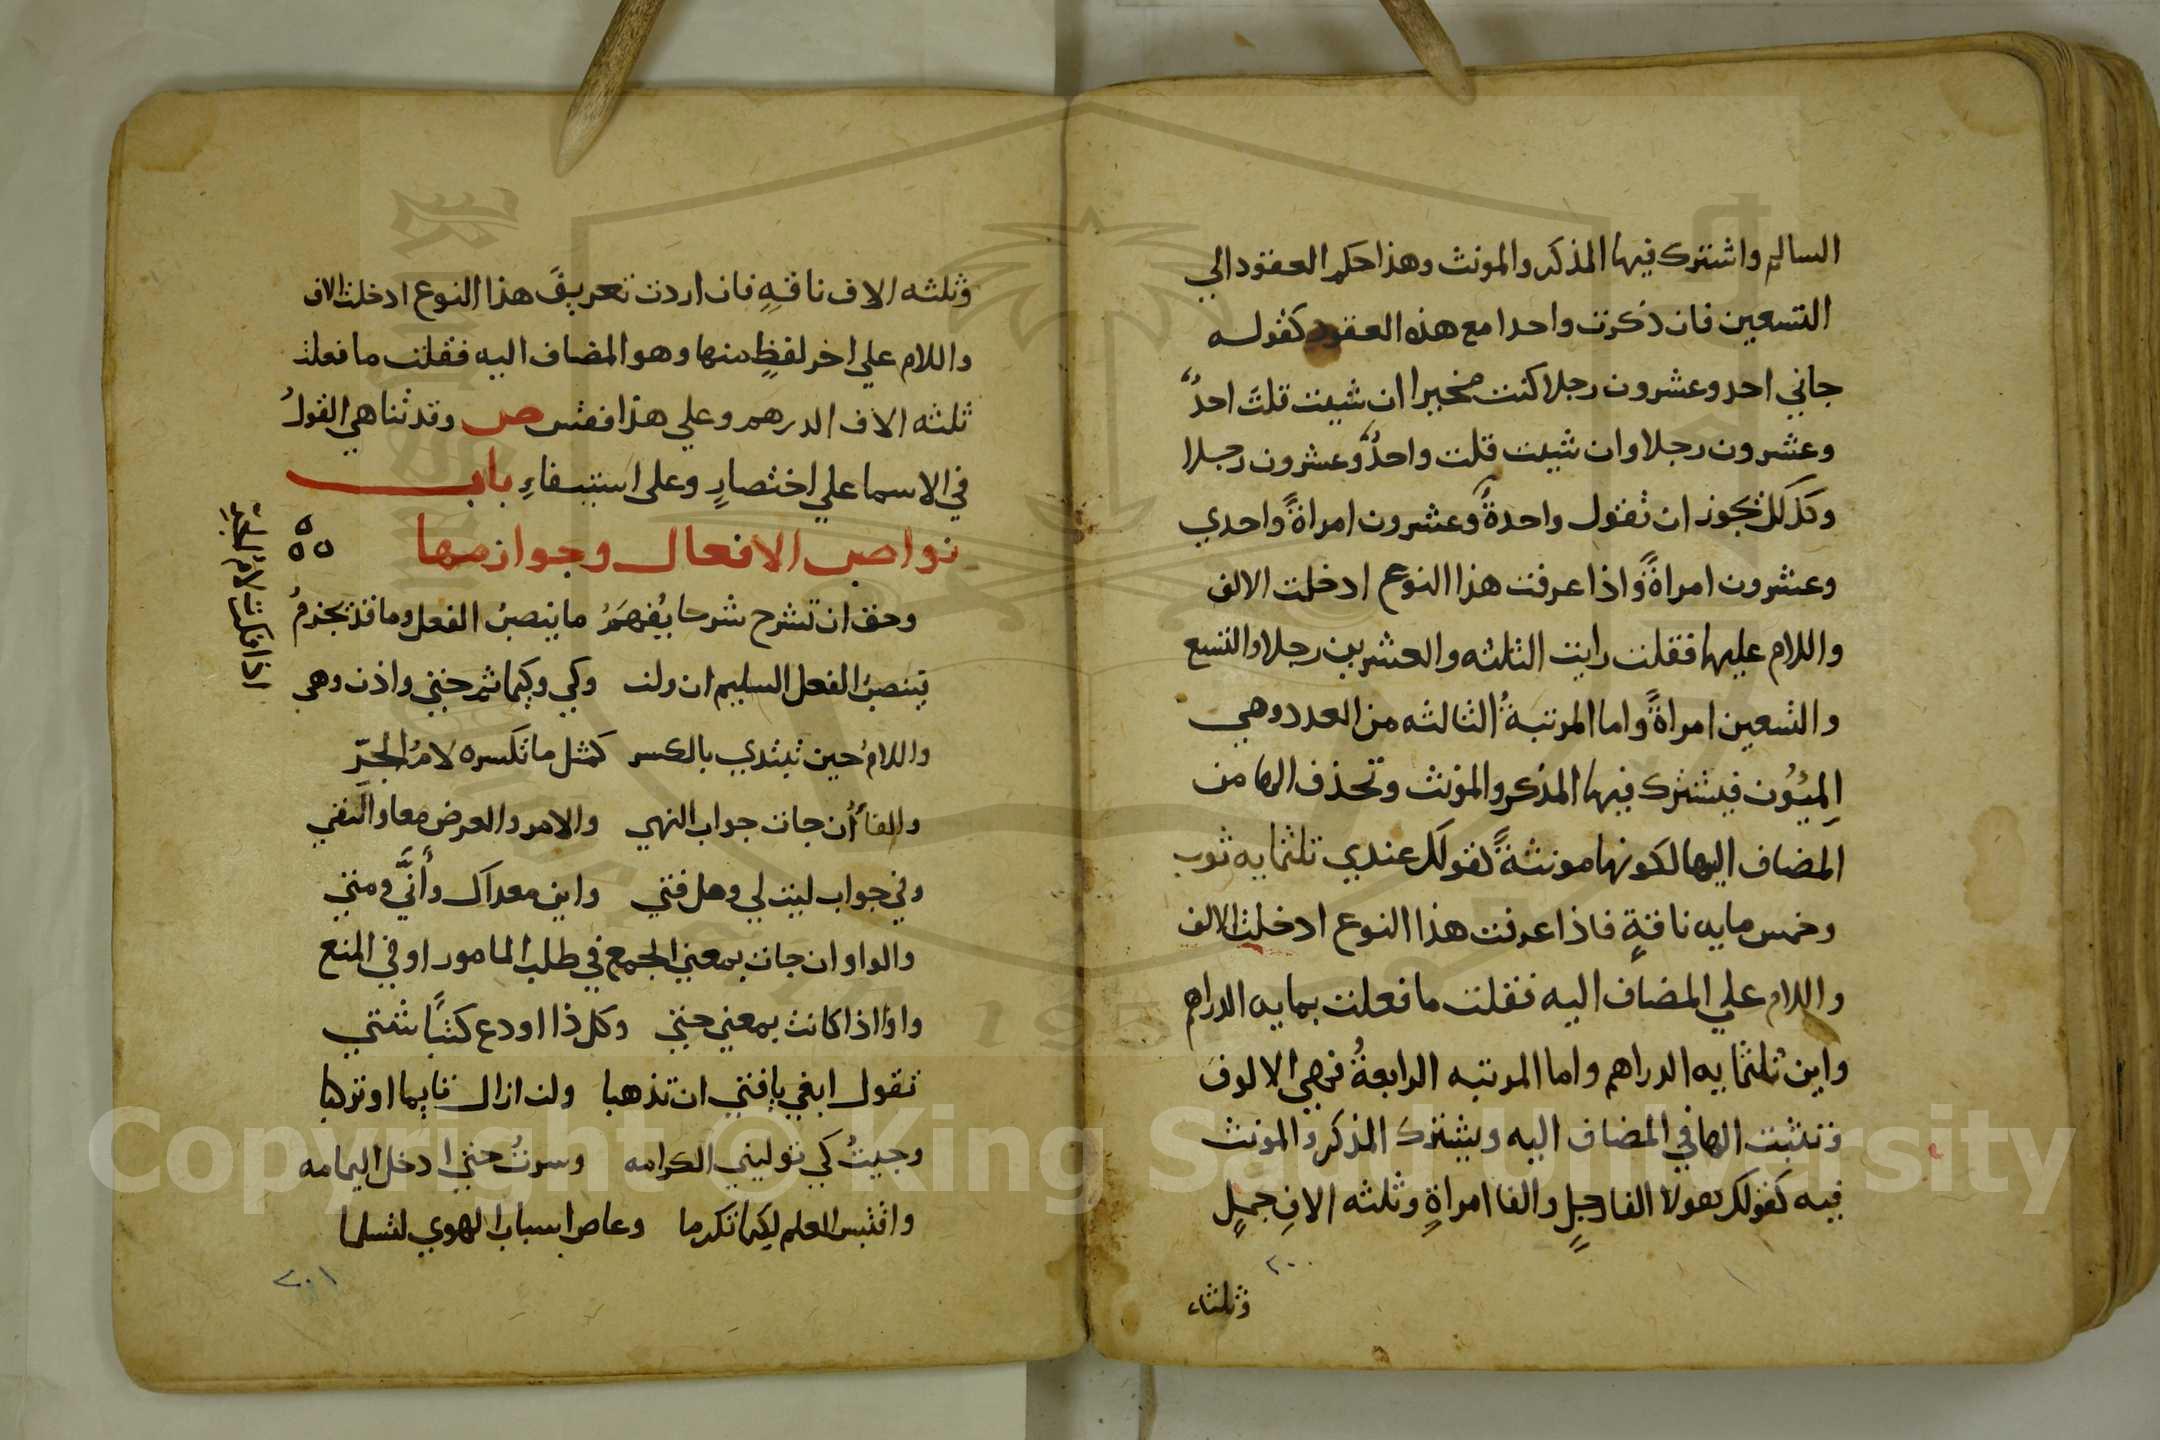 السالم واشترك فيها المذكر والمونث وهذا حكم العقود الي
التسعين فان ذكرت واحدا مع هذه العقود كقوله
جاني احد وعشرون رجلا كنت مخيرا ان شيت قلت احدٌ
وعشرون رجلا وان شيت قلت واحدٌ وعشرون رجلا
وكذلك يجوز ان تقول واحدةٌ وعشرون امراةً واحدي
وعشرون امراةً واذا عرفت هذا النوع ادخلت الالف
واللام عليها فقلت رايت الثلثه والعشرين رجلا والتسع
والتسعين امراةً واما المرتبةُ الثالثه من العدد وهي
المِيُون فيشترك فيها المذكر والمونث وتحذف الها من
المضاف اليها لكونها مونثةً كقولك عندي ثلثمايه ثوب
وخمس مايه ناقةٍ فاذا عرفت هذا النوع ادخلت الالف
واللام علي المضاف اليه فقلت ما فعلت بمايه الدراهم
واين ثلثمايه الدراهم واما المرتبه الرابعةُ فهي الالوف
فتثبت الها في المضاف اليه ويشترك المذكر والمونث
فيه كقولك هولا الفا رجلٍ والفا امراةٍ وثلثه الافِ جملٍ
٢٠٠
وثلثه
وثلثه الاف ناقهٍ فان اردت تعريفَ هذا النوع ادخلت الالف
واللام علي اخر لفظٍ منها وهو المضاف اليه فقلت ما فعلت
ثلثه الاف الدرهم وعلي هذا فقس ص وقد تناهي القولُ
في الاسما علي اختصارٍ وعلى استيفاءِ باب
نواصب الافعال وجوازمها
وحق ان تشرح شرحا يُفهَمُ ما ينصبُ الفعل وما قد يجزمُ
تنصبُ الفعل السليم ان ولن وكي وكيما ثم حتي واذن وهي
واللامُ حين تبتدي بالكسر كمثل ما تكسره لامُ الجرّ
والفاُ ان جات جواب النهي والامر والعرض معا والنفي
وفي جواب ليت لي وهل فتي واين مغداك وأنَّي ومتي
والواو ان جات بمعني الجمع في طلب المامور او في المنع
واو اذا كانت بمعني حتي وكل ذا اودع كتبًا شتي
تقول ابغي يا فتي ان تذهبا ولن ازال قايما او تركبا
وجيتُ كي توليني الكرامه وسرتُ حتي ادخل اليمامه
واقتبس العلم لكيما تكرما وعاص اسباب الهوي لتسلما
٢٠١
Copyright © King Saud University
1957